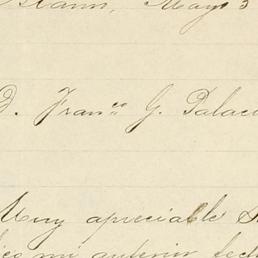 Mayo 3
D. Fran.co G. Palac
Muy apreciable S
mi anterior fech